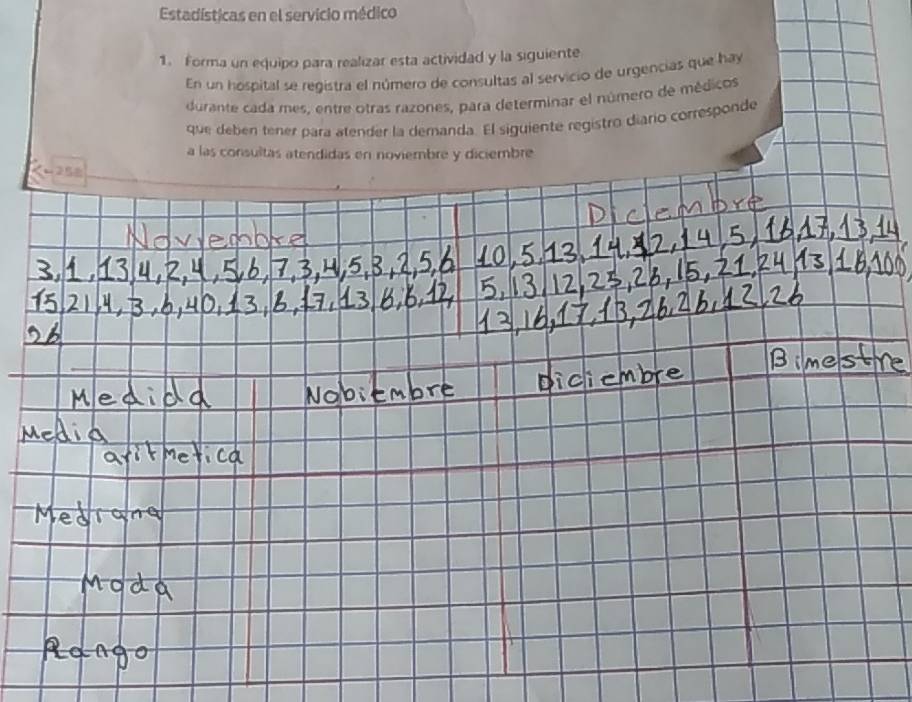 Estadísticas en el servicio médico
1. Forma un equipo para realizar esta actividad y la siguiente
En un hospital se registra el número de consultas al servicio de urgencias que hay
durante cada mes, entre otras razones, para determinar el número de médicos
que deben tener para atender la demanda. El siguiente registro diario corresponde
a las consultas atendidas en noviembre y diciembre
Noviembre
3, 1, 13, 4, 2, 4, 5, 6, 7, 3, 4, 5, 3, 2, 5, 6
15, 21, 4, 3, 6, 40, 13, 6, 17, 13, 6, 6, 12,
26
Diciembre
10, 5, 13, 14, 12, 14, 5, 16, 17, 13, 14,
5, 13, 12, 25, 26, 15, 21, 24, 13, 18, 100,
13, 16, 17, 13, 26, 26, 12, 26
Medida Nobiembre Diciembre Bimestre
Media
aritmetica
Mediana
Moda
Rango